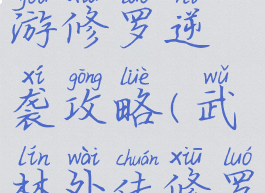 游修罗逆
xí gōng lüè wǔ
袭攻略(武
lín wài chuán xiū luó
林外传修罗